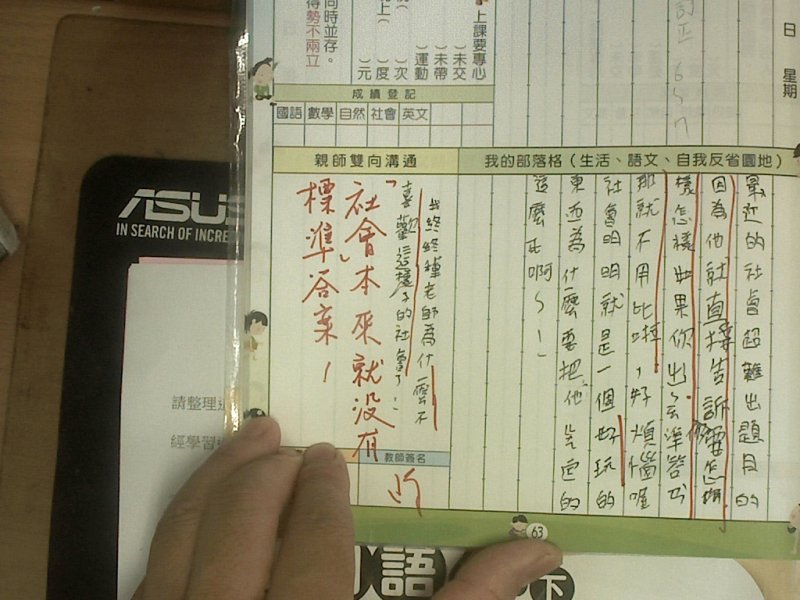 日 星期
訂正
上課要專心
）未交
）未帶
）運動
）次
）度
）元
同時並存。
得勢不兩立
成績登記
國語 數學 自然 社會 英文
我的部落格（生活、語文、自我反省園地）
最近的社會超難出題目的
因為他就直接告訴你要怎樣
樣怎樣如果你出準答
那就不用比啦，好煩惱喔
社會明明就是一個好玩的
東西為什麼要把他的
這麼死啊～！
親師雙向溝通
老師為什麼不
喜歡這樣子的社會了
「社會」本來就沒有
標準答案！
教師簽名
63
ASUS
IN SEARCH OF INCRE
請整理
經學習
語
下